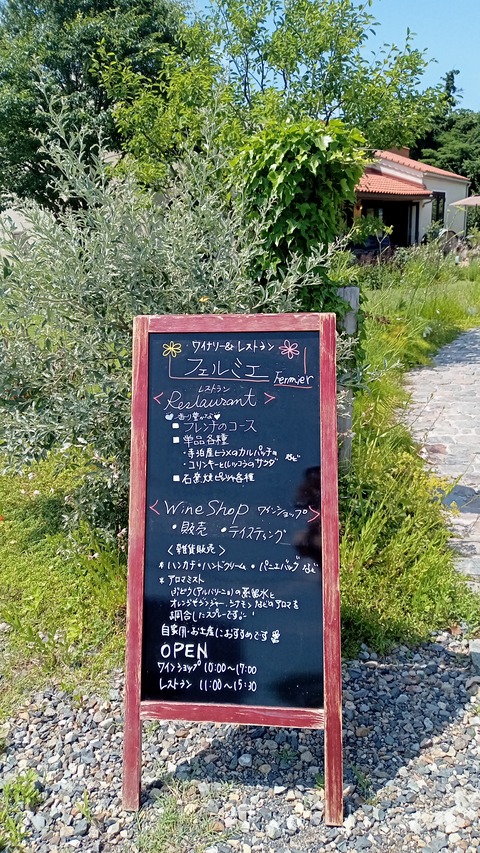 ワイナリー&レストラン
フェルミエ Fermier
レストラン
<Restaurant>
香り豊かな
■フレンチのコース
■単品各種
・寺泊産ヒラメのカルパッチョ
・コリンキーとルッコラのサラダ など
■石窯焼ピッツァ各種
<Wine Shop ワインショップ>
・販売 ・テイスティング
<雑貨販売>
*ハンカチ・ハンドクリーム・パニエバッグなど
*アロマミスト
(アルバリーニョ)の蒸留水と
オレンジやジンジャー、シナモンなどのアロマを
調合したスプレーです
自家用・お土産におすすめです
OPEN
ワインショップ 10:00〜17:00
レストラン 11:00〜15:30